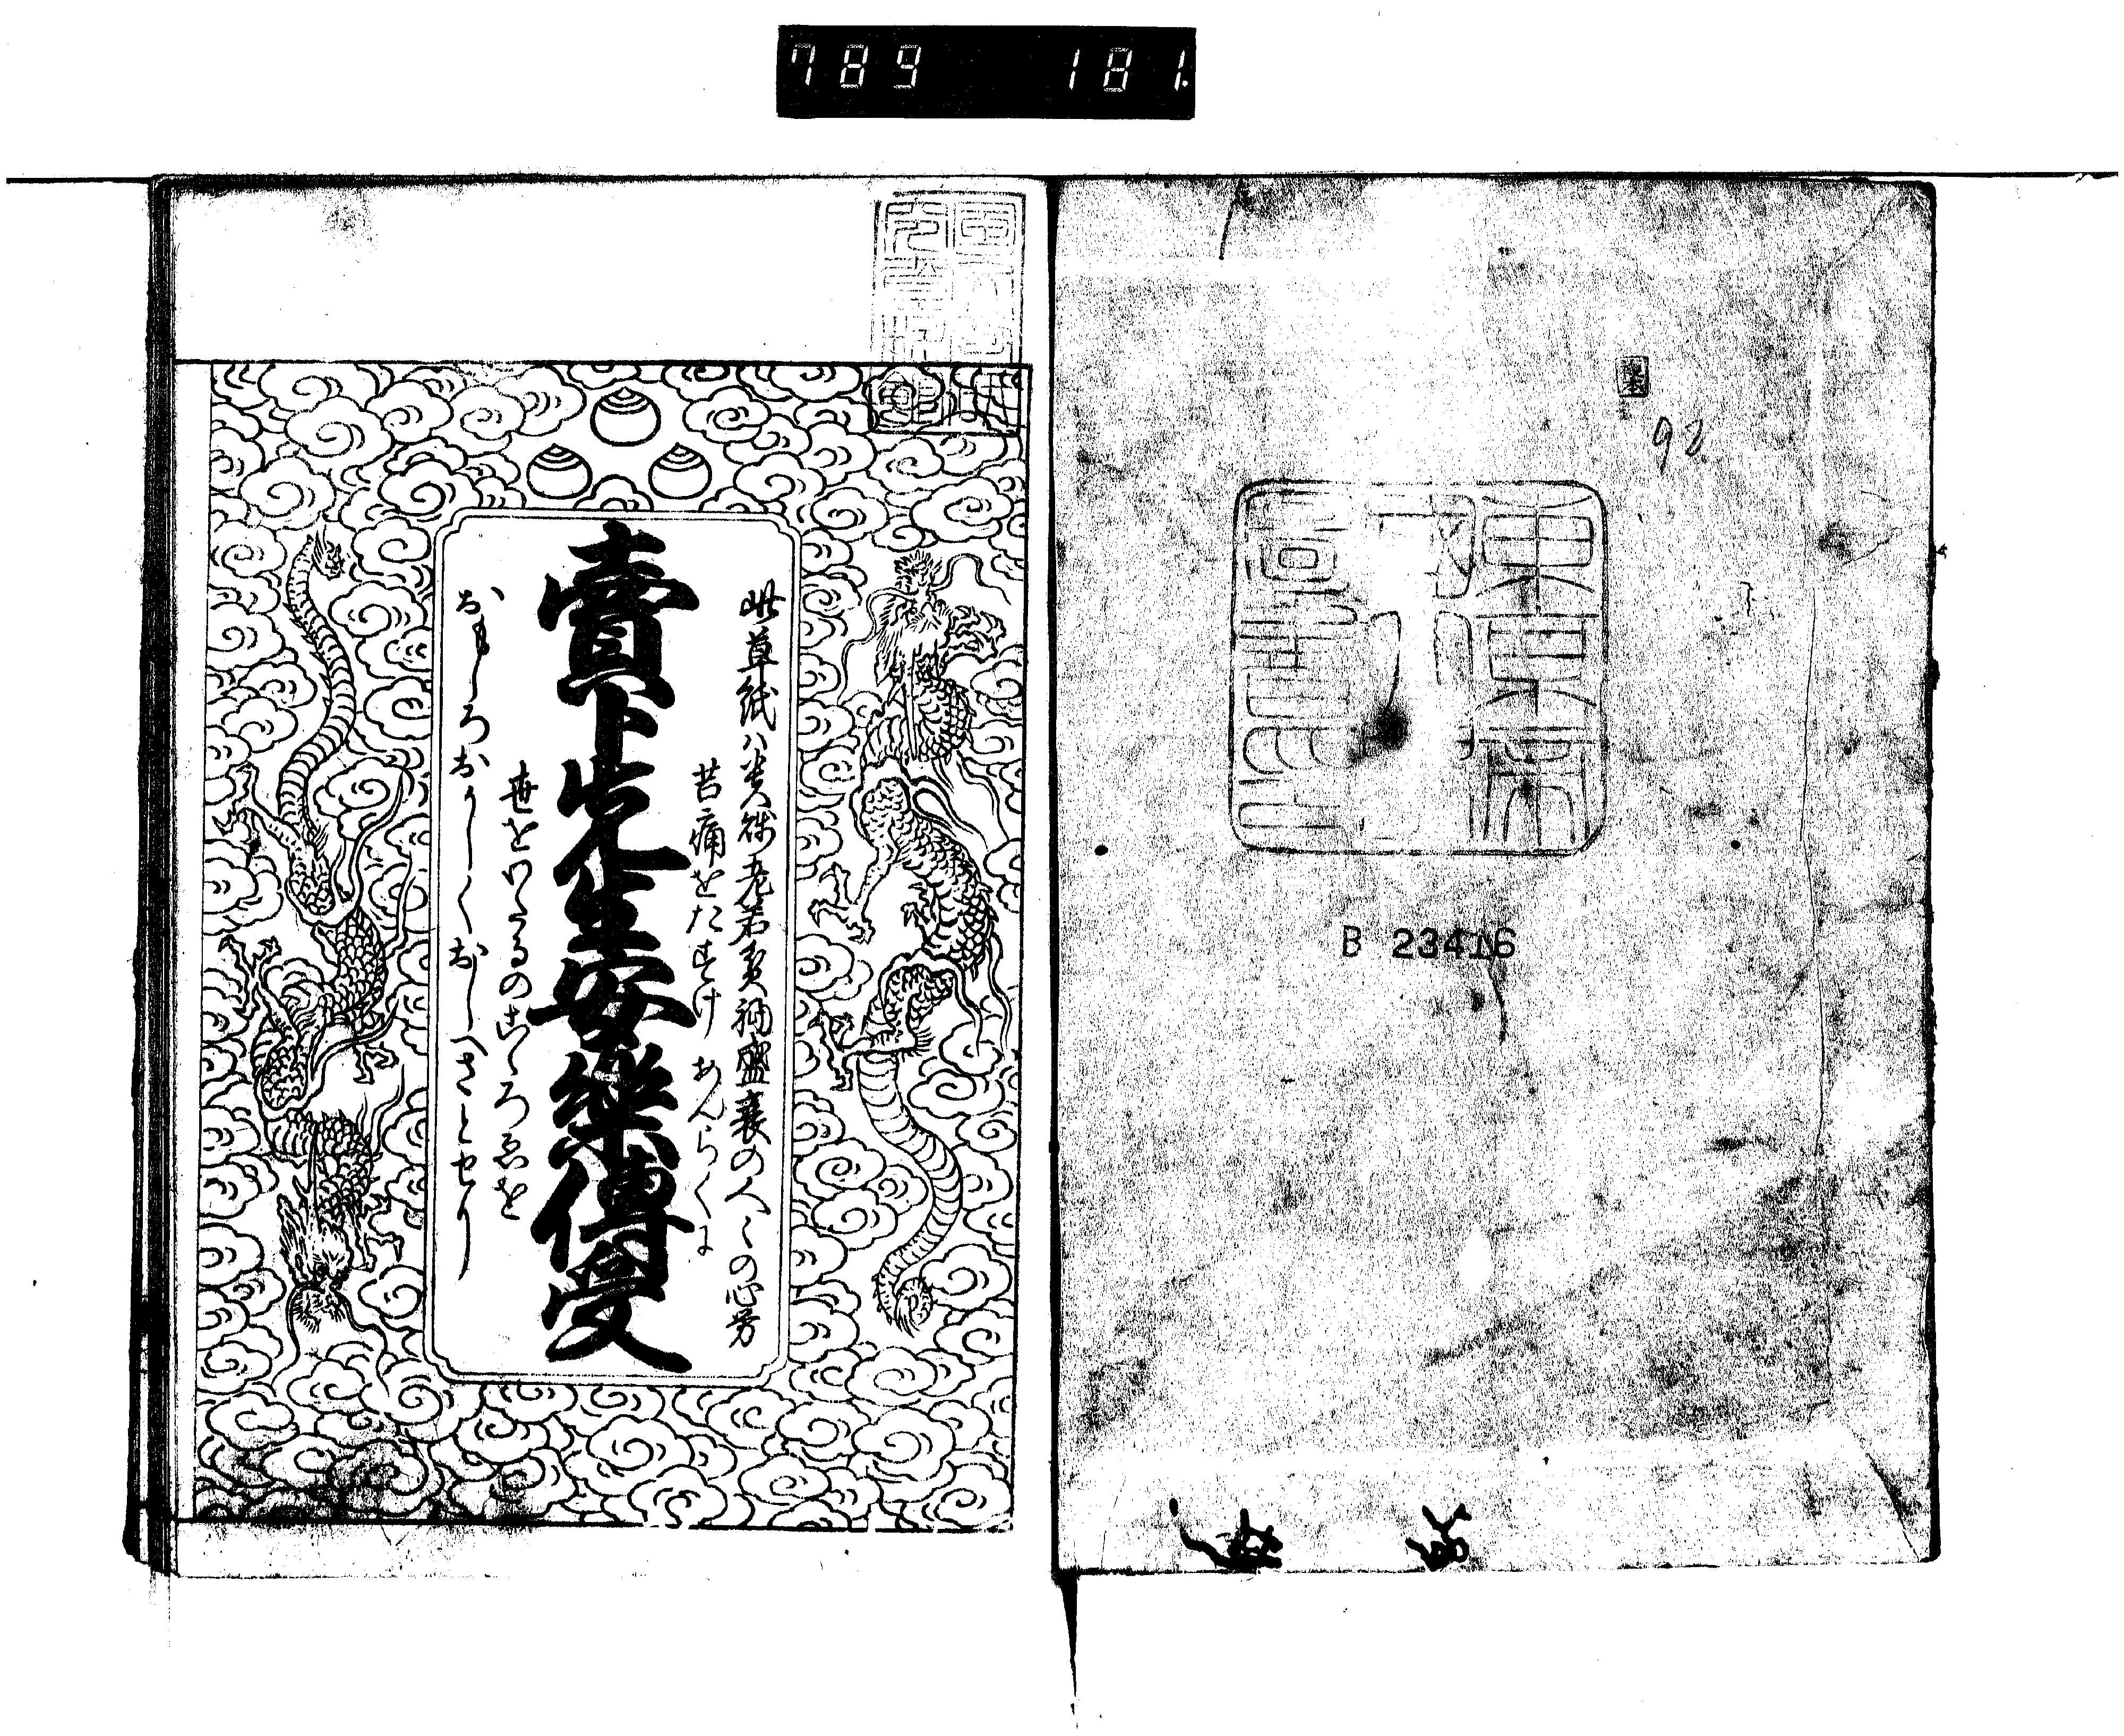 789 181
複本
92
B 23416
此草紙ハ貴賤老若貧福盛衰の人〻の心労
苦痛をたすけ あんらくに
賣卜先生安樂傳受
世をわたるのこゝろゑを
おもしろおかしくおしへさとせり